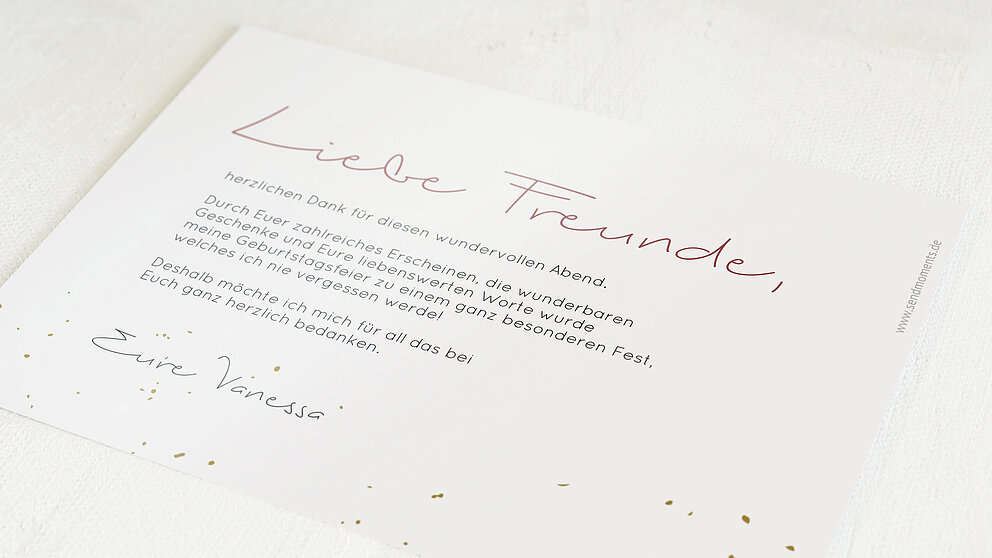 Liebe Freunde,
herzlichen Dank für diesen wundervollen Abend.
Durch Euer zahlreiches Erscheinen, die wunderbaren
Geschenke und Eure liebenswerten Worte wurde
meine Geburtstagsfeier zu einem ganz besonderen Fest,
welches ich nie vergessen werde!
Deshalb möchte ich mich für all das bei
Euch ganz herzlich bedanken.
Eure Vanessa
www.sendmoments.de